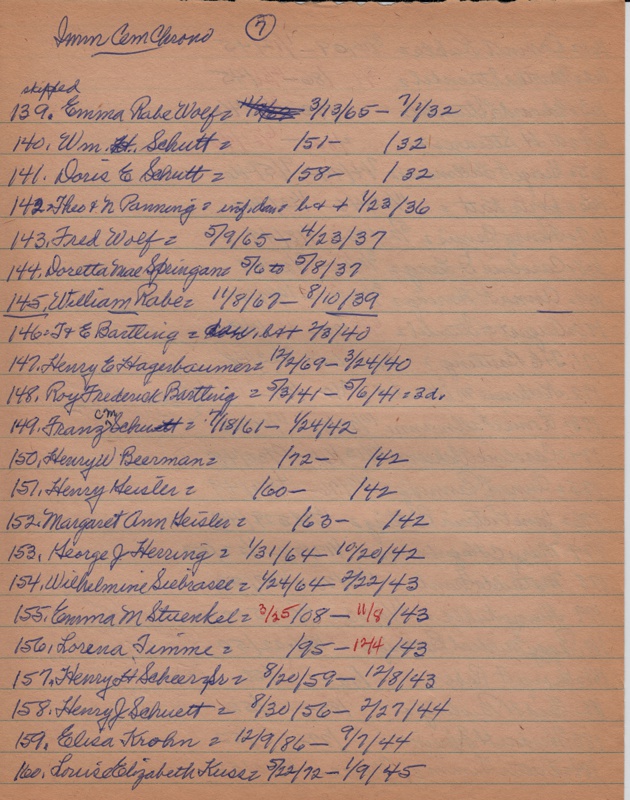 Imm Cem Chrono 7
skipped
139. Emma Rabe Wolf = 3/13/65 - 7/1/32
140. Wm. H. Schutt = /51- /32
141. Doris E Schutt = /58- /32
142. Theo & N Panning = inf. dau = b & + 1/23/36
143. Fred Wolf = 5/9/65 - 4/23/37
144. Doretta Mae Springan = 5/6 to 5/8/37
145. William Rabe = 11/8/67 - 8/10/39
146. & E Bartling = b&+ 2/3/40
147. Henry E Hagerbaumer = 12/2/69 - 3/24/40
148. Roy Frederick Bartling = 5/3/41 - 5/6/41 = 3d.
149. Franz CM Schuett = 7/18/61 - 1/24/42
150. Henry W Beerman = /72- /42
151. Henry Geisler = /60- /42
152. Margaret Ann Geisler = /63- /42
153. George J Herring = 1/31/64 - 10/20/42
154. Wilhelmine Siebrasse = 1/24/64 - 2/22/43
155. Emma M Stuenkel = 3/25/08 - 11/8/43
156. Lorena Timme = /95 - 12/4/43
157. Henry H Scheer, Sr = 8/20/59 - 12/8/43
158. Henry J Schuett = 8/30/56 - 2/27/44
159. Elisa Krohn = 12/9/86 - 9/7/44
160. Louise Elizabeth Kuss = 5/22/72 - 1/9/45